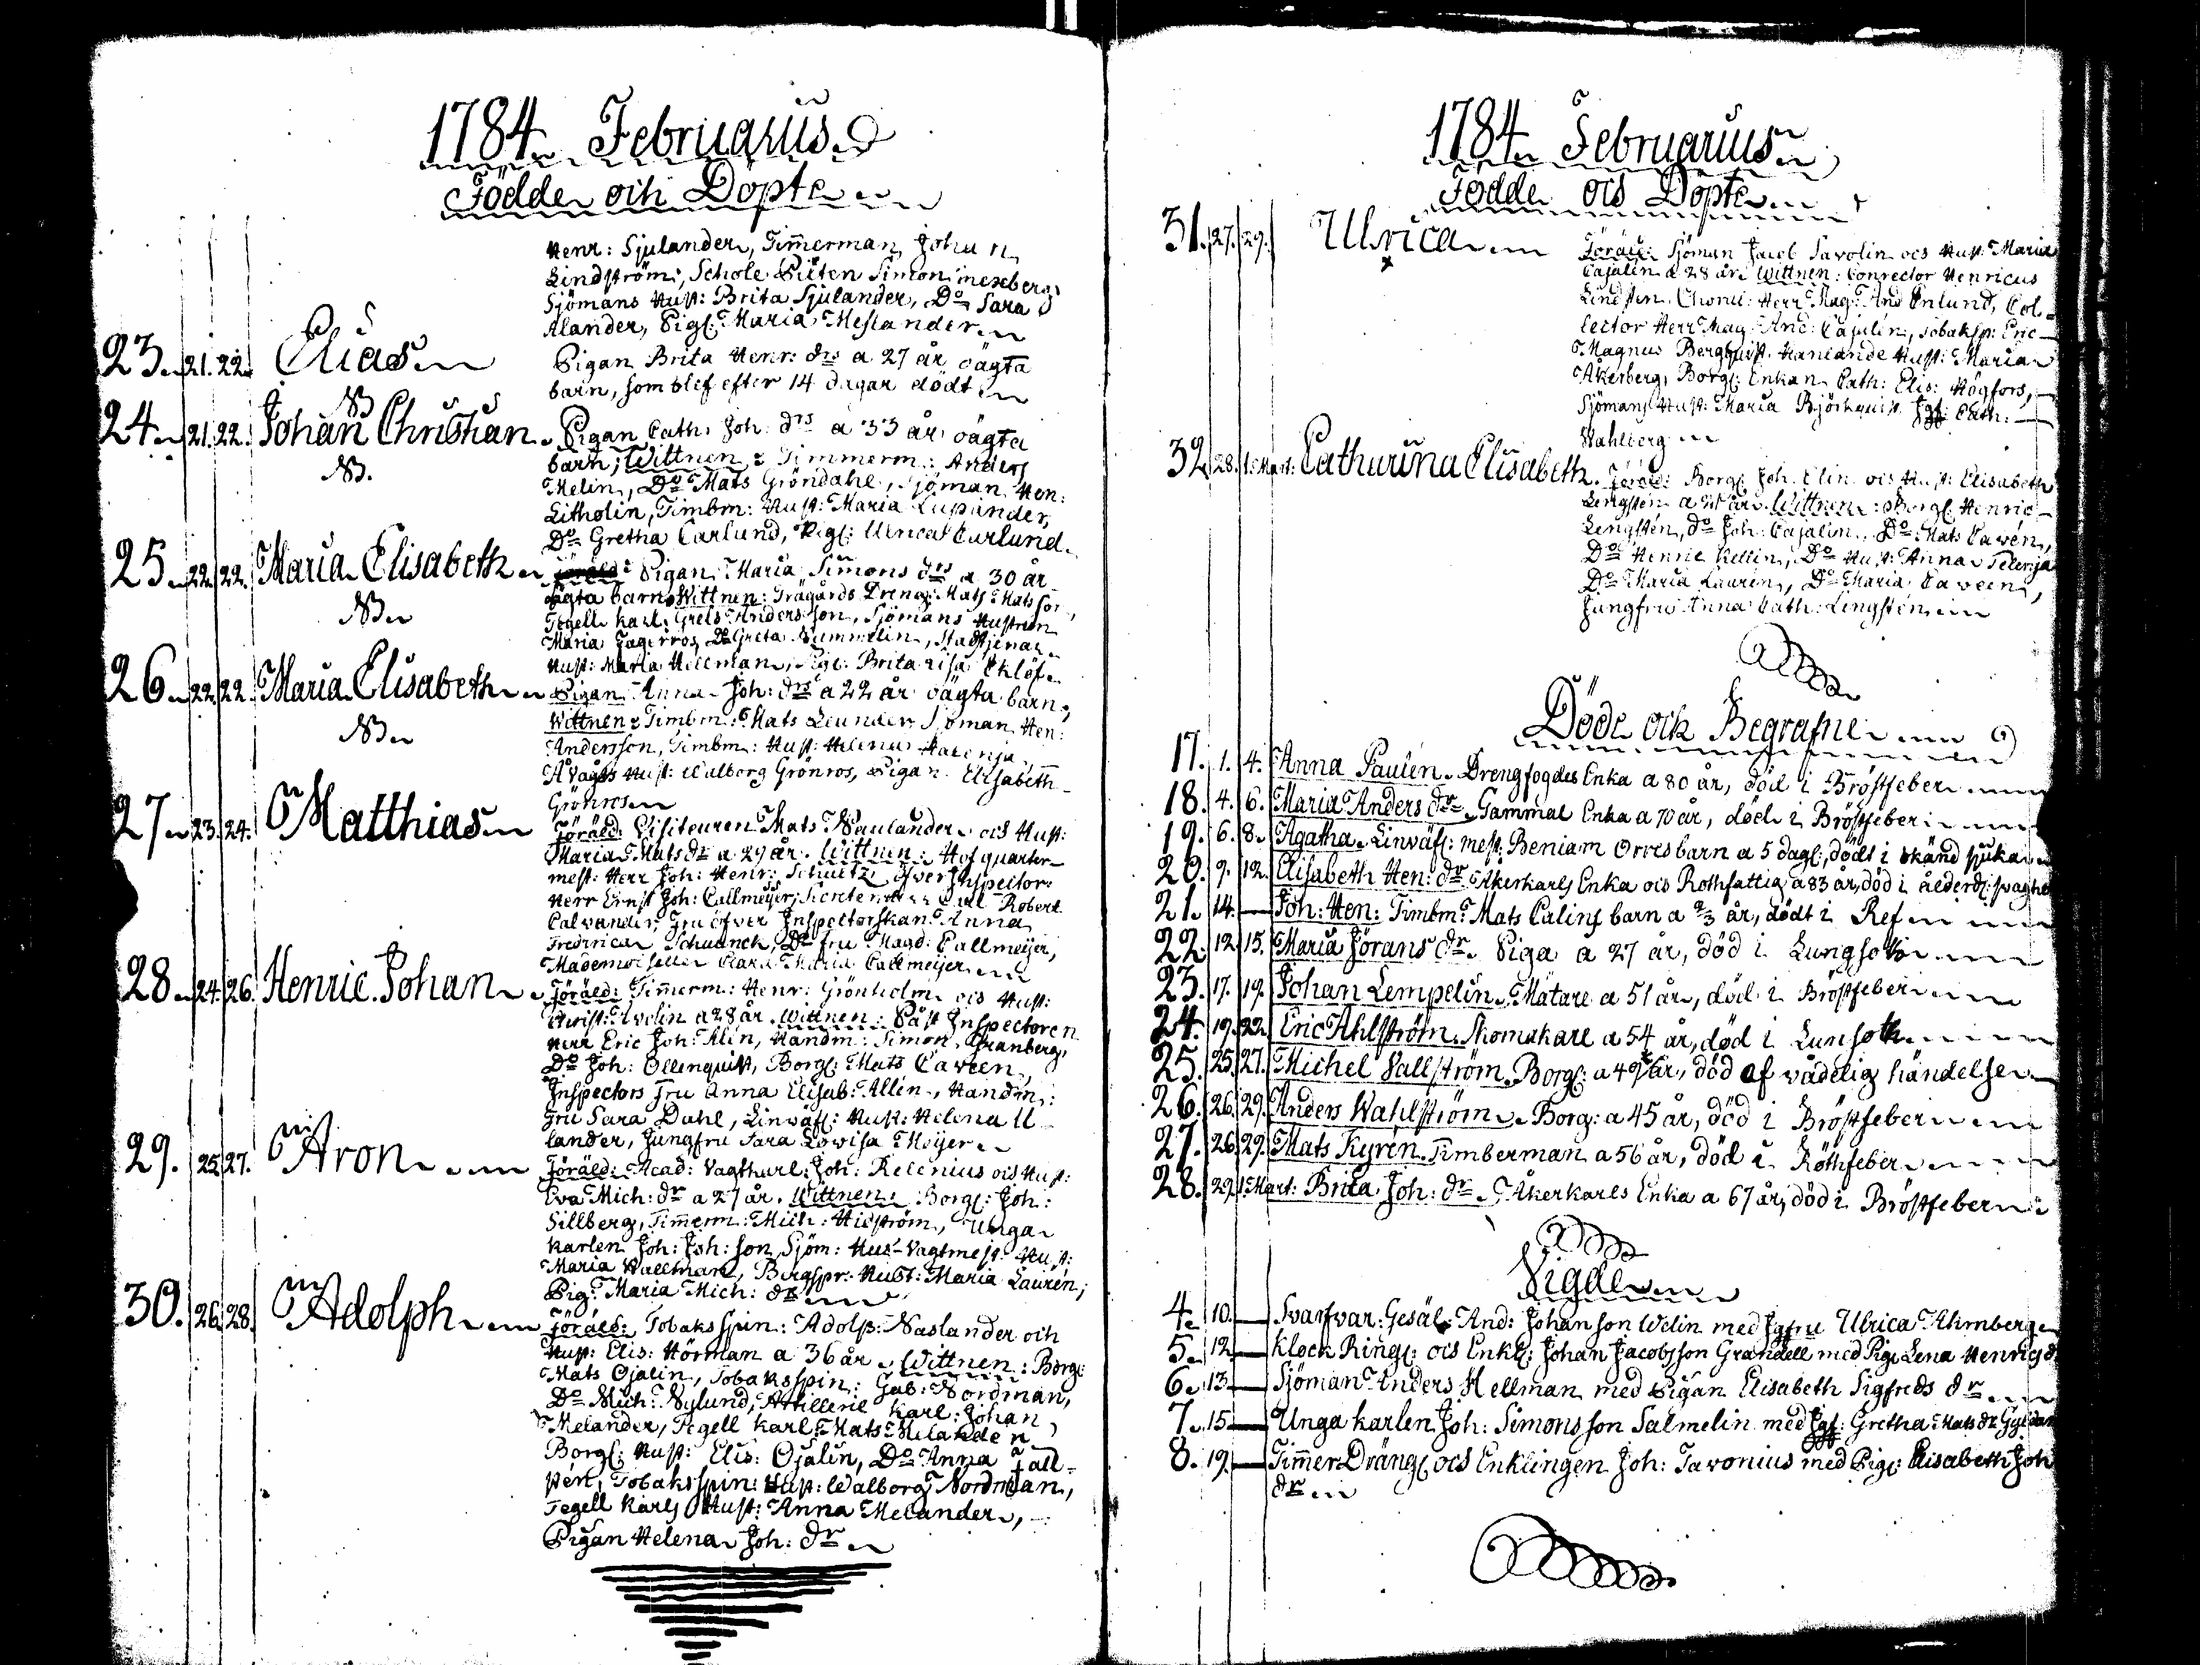 1784 Februarius
Födde och Döpte
Henr: Sjulander, Timerman Johan
Lindström, Schole Pilten Simon
Sjömans Hust: Brita Sjulander, Do Sara
Alander, Pigl: Maria Meslander
23. 21. 22. Elias Pigan Brita Henr: drs a 27 år oägta
barn, som blef efter 14 dagar dödt
NB
24. 21. 22. Johan Christian Pigan Cath: Joh: drs a 33 år oägta
barn, Wittnen: Timmerm: Anders
NB.
Melin, Do Mats Gröndahl, Sjöman Hen:
Litholin, Timbm: Hust: Maria Lupander,
Do Gretha Carlund, Pigl: Ulrica Carlund.
25. 22. 22. Maria Elisabeth Pigan Maria Simons drs a 30 år
oägta barn Wittnen: Trägårds Dreng: Mats Matsson,
NB
Tegell karl: Grels Andersson, Sjömans Hustrun
Maria Fagerros, Do Greta Nummelin,
Hust: Maria Hellman, Pigl: Brita Lisa Eklöf
26. 22. 22. Maria Elisabeth Pigan Anna Joh: drs a 22 år oägta barn,
Wittnen: Timbm: Mats Leunder Sjöman Hen:
NB
Andersson, Timbm: Hust: Helena
Hust: Walborg Grönros, Pigan Elisabeth
Grönros
27. 23. 24. Matthias Föräld: Visiteuren Mats Naulander och Hust:
Maria Mats dr a 29 år. Wittnen: Hofquarter-
mest: Herr Joh: Henr: Schultz, öfver Inspector:
Herr Ernst Joh: Callmeijer, Carl Robert
Calvander, Fru öfver Inspectorskan Anna
Fredrica Schuanck, Do fru Magd: Callmeijer,
Mademoiselle Clara Maria Callmeijer
28. 24. 26. Henric Johan Föräld: Timerm: Henr: Grönholm och Hust:
Christ: Avelin a 28 år. Wittnen: Påst Inspectoren
Herr Eric Joh: Alin, Handm: Simon Granberg,
Do Joh: Ollenquist, Borgl: Mats Caveen,
Inspectors Fru Anna Elisab: Allin, Handm:
Fru Sara Dahl, Linväf: Hust: Helena U
lander, Jungfru Sara Lowisa Meijer
29. 25. 27. Aron Föräld: Acad: Vagtkarl: Joh: Relenius och Hust:
Eva Mich: dr a 27 år. Wittnen: Borgl: Joh:
Sillberg, Timerm: Mich: Hidström, Unga
karlen Joh: Joh: son, Sjöm: Hus Vagtmest: Hust:
Maria Wallman, Bergspr: Hust: Maria Laurén,
Pig: Maria Mich: dr
30. 26. 28. Adolph Föräld: Tobaksspin: Adolp: Naslander och
Hust: Elis: Hörman a 36 år. Wittnen: Borgl:
Mats Ojalin, Tobaksspin: Gab: Nordman,
Do Mich: Nylund, Artillerie karl: Johan
Melander, Tegell karl: Mats Melander,
Borgl: Hust: Elis: Ojalin, Do Anna Tall-
Tobaksspin: Hust: Walborg Nordman,
Tegell Karls Hust: Anna Melander,
Pigan Helena Joh: dr
1784 Februarius
Födde och Döpte
31. 27. 29. Ulrica Föräld: Sjöman Jacob Savolin och Hust: Maria
Cajalin a 28 år. Wittnen: Conrector Henricus
Lindsten, Herr Mag: And Enlund, Col-
lector Herr Mag: And: Cajalin, Tobaksp: Eric
Magnus Bergquist, Hust: Maria
Åkerberg, Borgl: Enkan Cath: Elis: Högfors,
Sjömans Hust: Maria Björkquist Jgf: Cath:
Wahlberg
32. 28. 1. Mart: Catharina Elisabeth. Föräld: Borgl: Joh: Elin och Hust: Elisabeth
Lengstén a år. Wittnen: Borgl: Henric
Lengstén, do Joh: Cajalin, Do Mats Cavén,
Do Henric Kellin, Do Hust: Anna
Do Maria Laurén, Do Maria Caveen,
Jungfru Anna Cath: Lengstén
Döde och Begrafne
17. 1. 4. Anna Paulén. Drengfogdes Enka a 80 år, död i Bröstfeber
18. 4. 6. Maria Anders dr. Gammal Enka a 70 år, död i Bröstfeber
19. 6. 8. Agatha. Linväf: mest: Beniam Orres barn a 5 dagl:, dödt i okänd sjuka
20. 9. 12. Elisabeth Hen: dr Åkerkarls Enka och Rothfattig a 83 år, död i ålderd: svaghet
21. 14. — Joh: Hen: Timbm: Mats Calins barn a 2/3 år, dödt i Ref
22. 12. 15. Maria Jörans dr. Piga a 27 år, död i Lungsot
23. 17. 19. Johan Lempelin. Mätare a 51 år, död i Bröstfeber
24. 19. 22. Eric Ahlström. Skomakare a 54 år, död i Lunsoth
25. 25. 27. Michel Vallström. Borgl: a 49 år, död af vådelig händelse
26. 26. 29. Anders Wahlström. Borg: a 45 år, död i Bröstfeber
27. 26. 29. Mats Kyrén. Timberman a 56 år, död i Röthfeber
28. 29. 1. Mart: Brita Joh: dr. Åkerkarls Enka a 67 år, död i Bröstfeber
Vigde
4. 10. — Svarfvar: Gesäl And: Johansson Welin med Jgfru Ulrica Almberg
5. 12. — Klock Ringl: och Enkl: Johan Jacobsson Grandell med Pig: Lena Henrics d
6. 13. — Sjöman Anders Hellman med Pigan Elisabeth Sigfreds dr
7. 15. — Unga karlen Joh: Simonsson Salmelin med Jgf: Gretha Mats dr
8. 19. — Timer Dräng: och Enklingen Joh: Tavonius med Pigl: Elisabeth Joh
dr